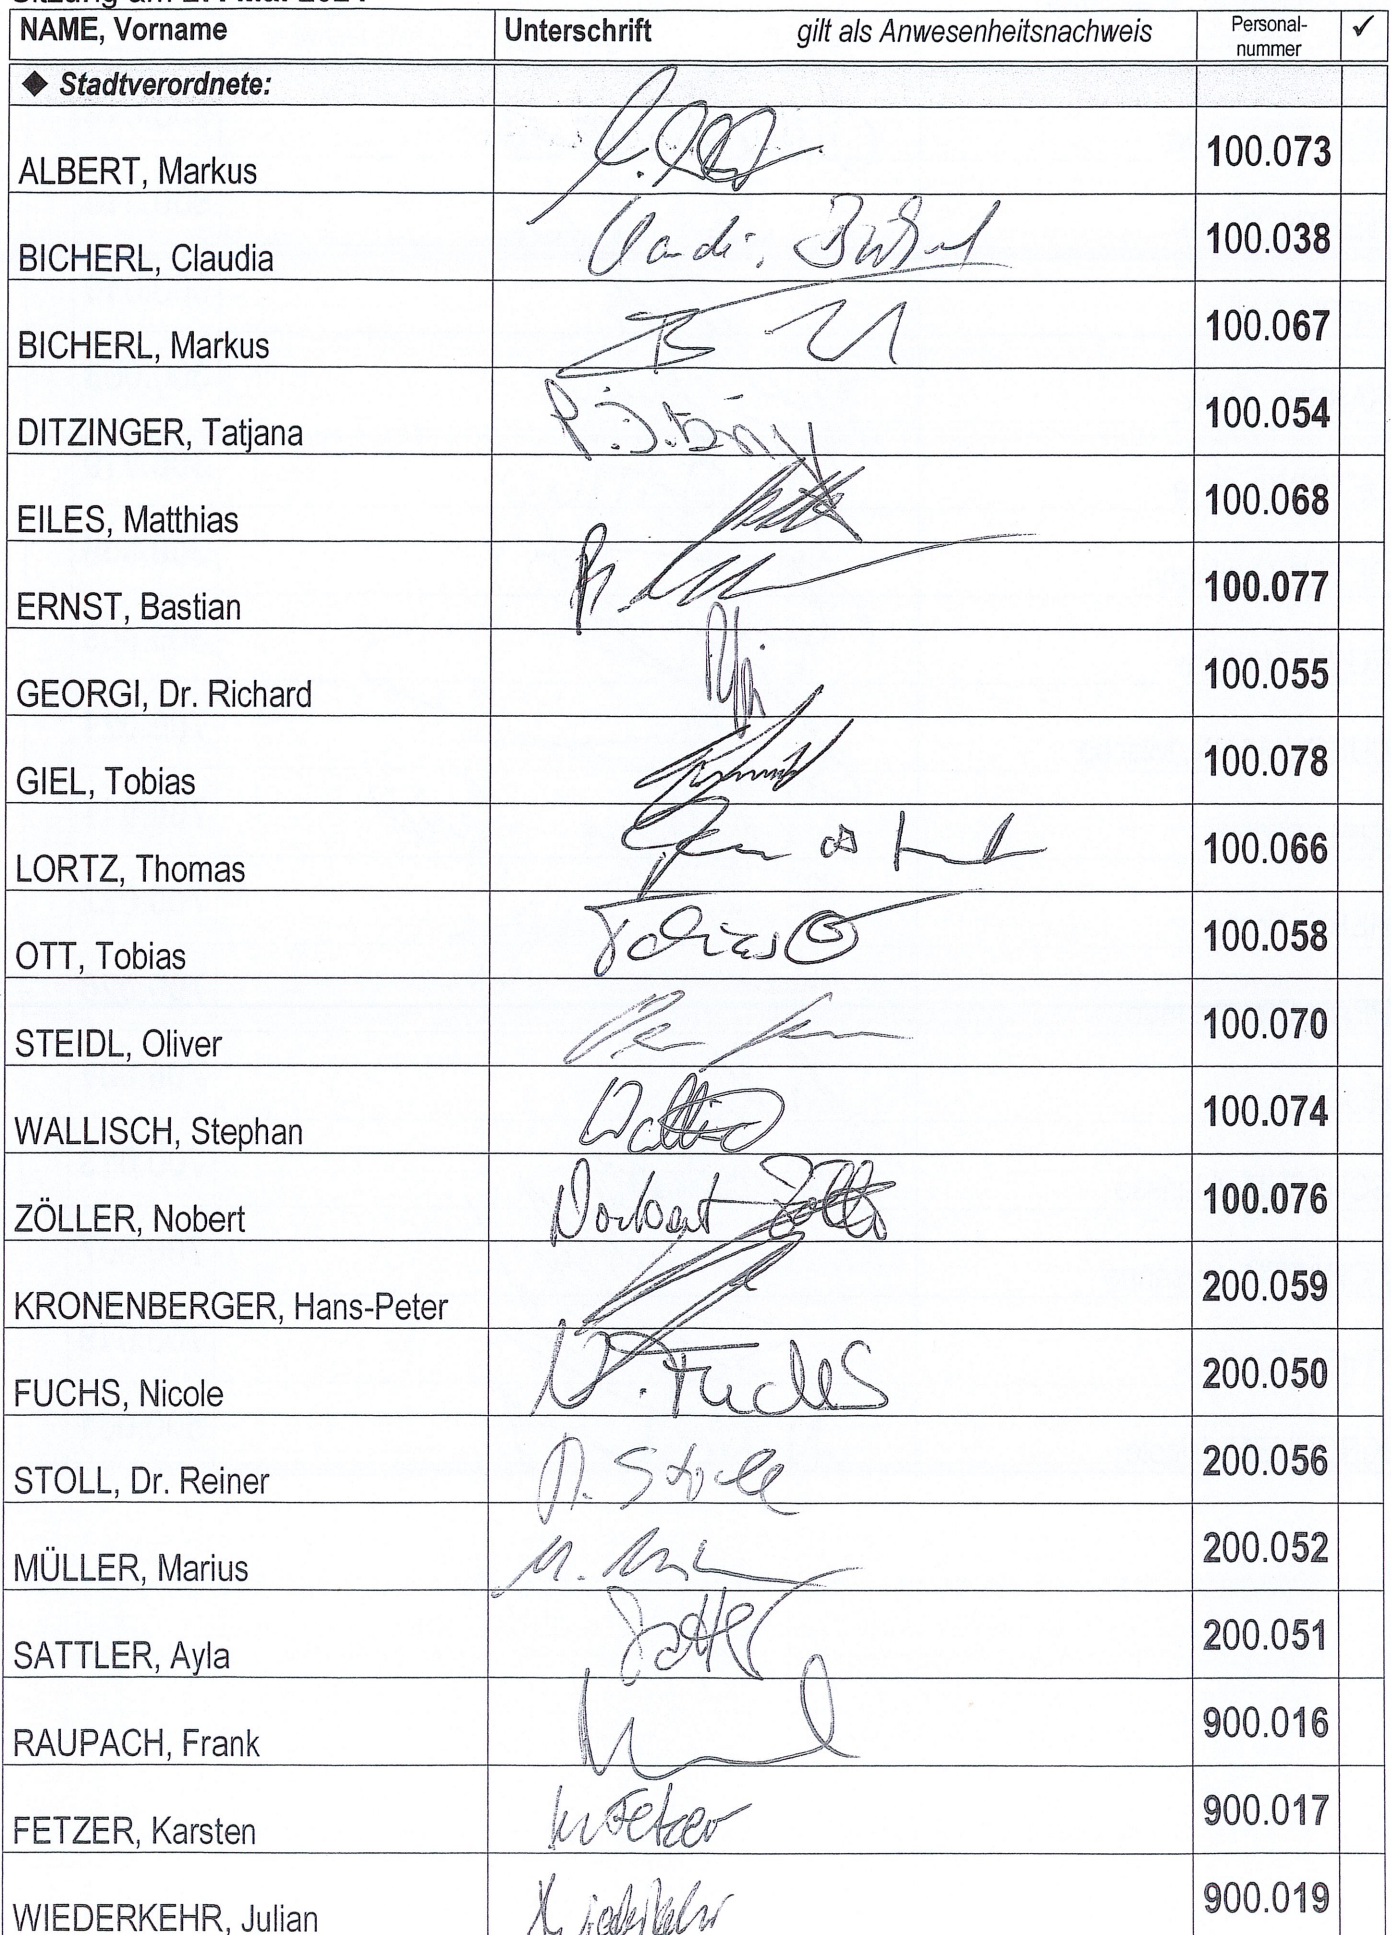 NAME, Vorname Unterschrift gilt als Anwesenheitsnachweis Personal-nummer ✓
◆ Stadtverordnete:
ALBERT, Markus 100.073
BICHERL, Claudia 100.038
BICHERL, Markus 100.067
DITZINGER, Tatjana 100.054
EILES, Matthias 100.068
ERNST, Bastian 100.077
GEORGI, Dr. Richard 100.055
GIEL, Tobias 100.078
LORTZ, Thomas 100.066
OTT, Tobias Tobias 100.058
STEIDL, Oliver 100.070
WALLISCH, Stephan 100.074
ZÖLLER, Nobert Norbert Zöller 100.076
KRONENBERGER, Hans-Peter 200.059
FUCHS, Nicole N. Fuchs 200.050
STOLL, Dr. Reiner R. Stoll 200.056
MÜLLER, Marius 200.052
SATTLER, Ayla 200.051
RAUPACH, Frank 900.016
FETZER, Karsten 900.017
WIEDERKEHR, Julian 900.019